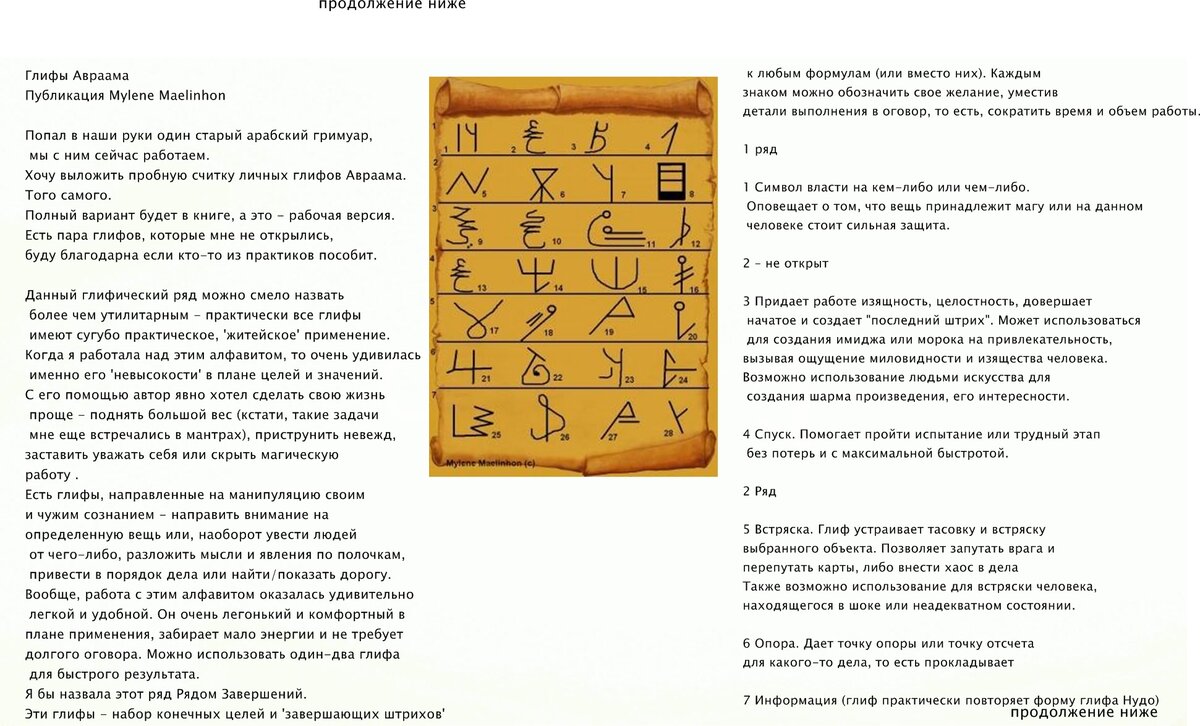 продолжение ниже
Глифы Авраама
Публикация Mylene Maelinhon
Попал в наши руки один старый арабский гримуар,
мы с ним сейчас работаем.
Хочу выложить пробную считку личных глифов Авраама.
Того самого.
Полный вариант будет в книге, а это - рабочая версия.
Есть пара глифов, которые мне не открылись,
буду благодарна если кто-то из практиков пособит.
Данный глифический ряд можно смело назвать
более чем утилитарным - практически все глифы
имеют сугубо практическое, 'житейское' применение.
Когда я работала над этим алфавитом, то очень удивилась
именно его 'невысокости' в плане целей и значений.
С его помощью автор явно хотел сделать свою жизнь
проще - поднять большой вес (кстати, такие задачи
мне еще встречались в мантрах), приструнить невежд,
заставить уважать себя или скрыть магическую
работу .
Есть глифы, направленные на манипуляцию своим
и чужим сознанием - направить внимание на
определенную вещь или, наоборот увести людей
от чего-либо, разложить мысли и явления по полочкам,
привести в порядок дела или найти/показать дорогу.
Вообще, работа с этим алфавитом оказалась удивительно
легкой и удобной. Он очень легонький и комфортный в
плане применения, забирает мало энергии и не требует
долгого оговора. Можно использовать один-два глифа
для быстрого результата.
Я бы назвала этот ряд Рядом Завершений.
Эти глифы - набор конечных целей и 'завершающих штрихов'
1 1 2 3 4
2 5 6 7 8
3 9 10 11 12
4 13 14 15 16
5 17 18 19 20
6 21 22 23 24
7 25 26 27 28
Mylene Maelinhon (c)
к любым формулам (или вместо них). Каждым
знаком можно обозначить свое желание, уместив
детали выполнения в оговор, то есть, сократить время и объем работы.
1 ряд
1 Символ власти на кем-либо или чем-либо.
Оповещает о том, что вещь принадлежит магу или на данном
человеке стоит сильная защита.
2 - не открыт
3 Придает работе изящность, целостность, довершает
начатое и создает "последний штрих". Может использоваться
для создания имиджа или морока на привлекательность,
вызывая ощущение миловидности и изящества человека.
Возможно использование людьми искусства для
создания шарма произведения, его интересности.
4 Спуск. Помогает пройти испытание или трудный этап
без потерь и с максимальной быстротой.
2 Ряд
5 Встряска. Глиф устраивает тасовку и встряску
выбранного объекта. Позволяет запутать врага и
перепутать карты, либо внести хаос в дела
Также возможно использование для встряски человека,
находящегося в шоке или неадекватном состоянии.
6 Опора. Дает точку опоры или точку отсчета
для какого-то дела, то есть прокладывает
7 Информация (глиф практически повторяет форму глифа Нудо)
продолжение ниже